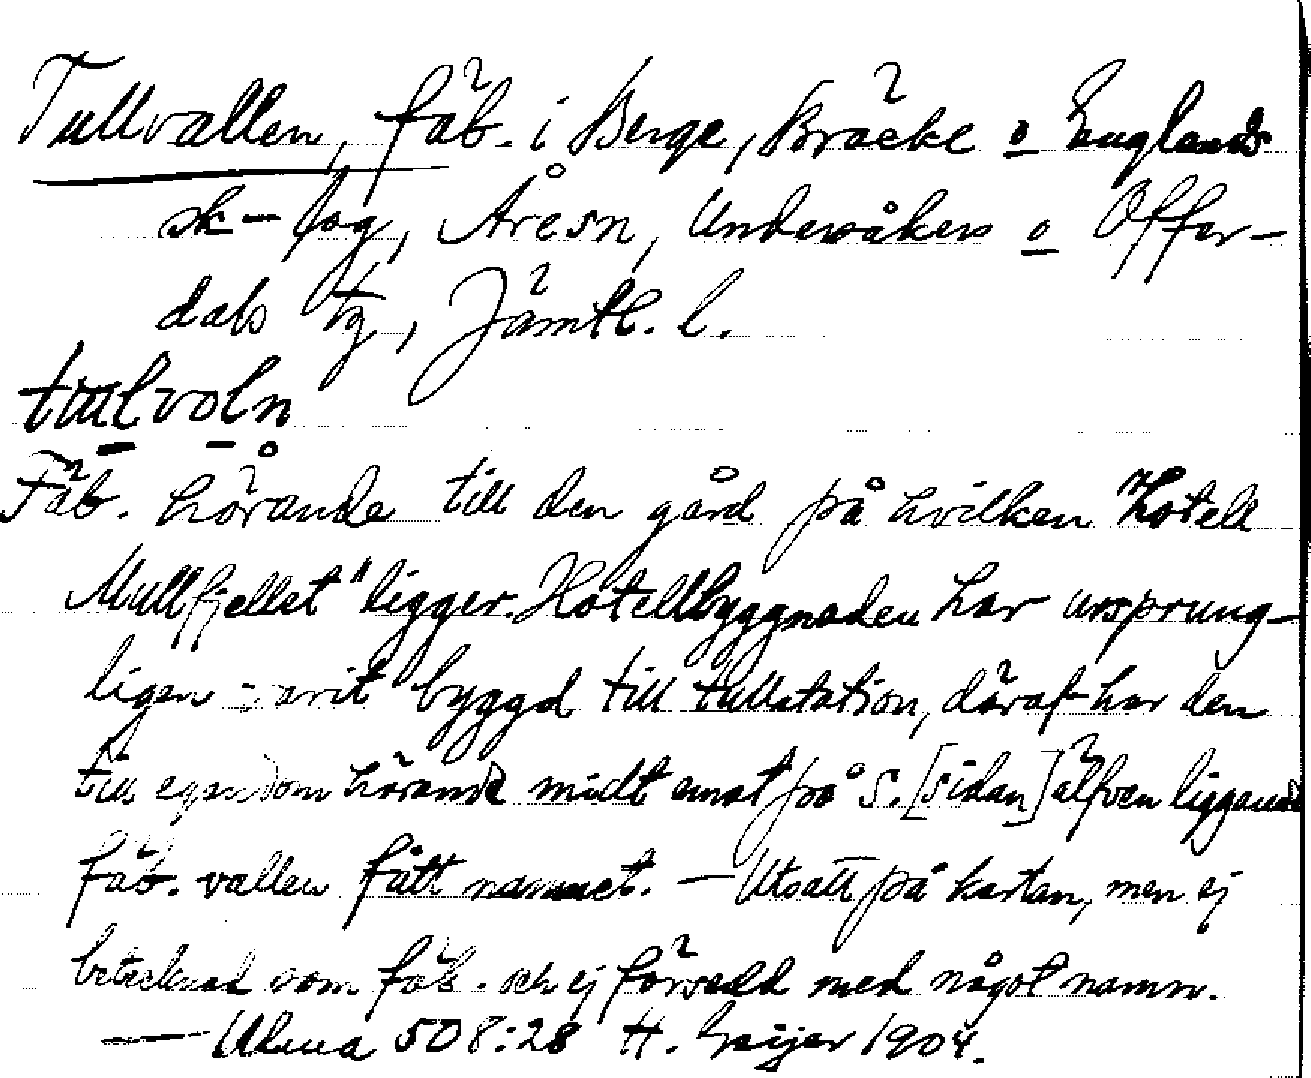 Tullvallen, fäb. i Berge, Bräcke o Englands
sk-lag, Åresn, Undersåkers o Offer-
dals tg, Jämtl. l.
Fäb. hörande till den gård på hvilken Hotell
Mullfjellet" ligger. Hotellbyggnaden har ursprung-
ligen varit byggd till tullstation, däraf har den
till egendom hörande midt emot på S. [sidan] älfven liggande
fäb. vallen fått namnet. — Utsatt på kartan, men ej
betecknad som fäb. och ej försedd med något namn.
— Ulma 508:28 H. Geijer 1904.